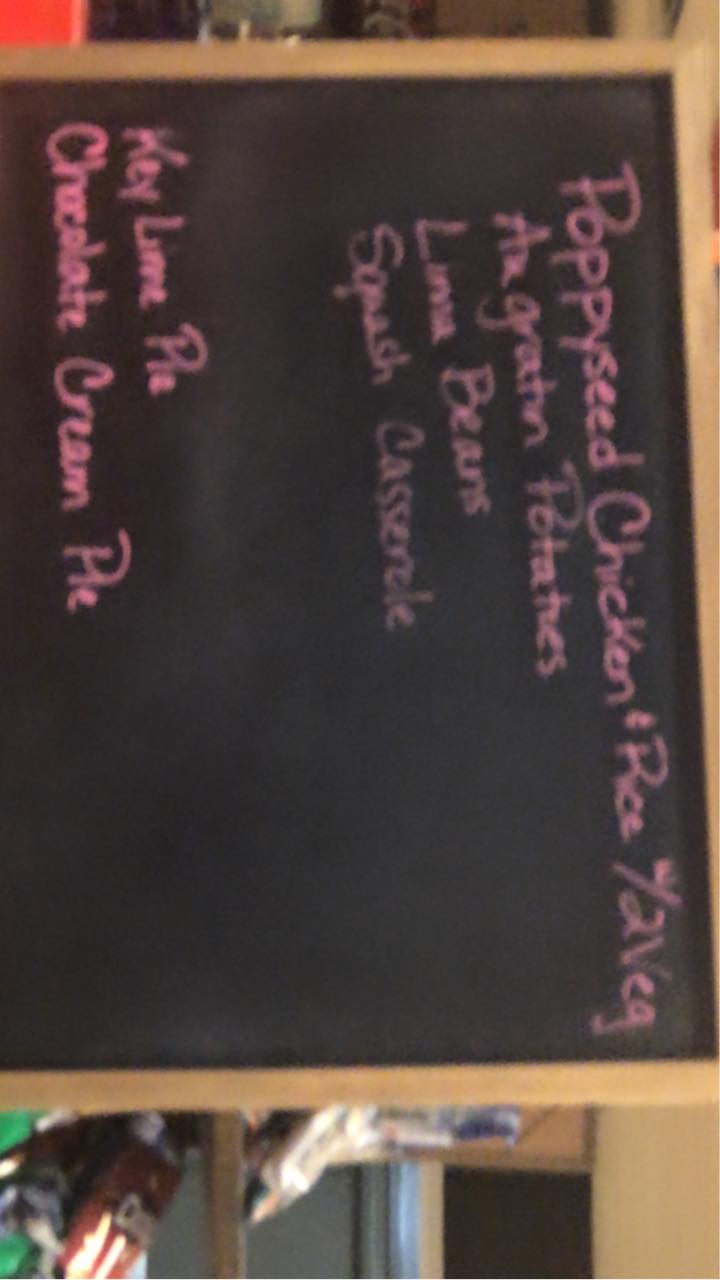 Poppyseed Chicken & Rice w/2Veg
Au gratin Potatoes
Lima Beans
Squash Casserole
Key Lime Pie
Chocolate Cream Pie